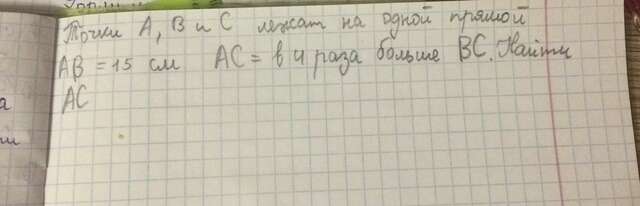 Точки A, B и C лежат на одной прямой
AB = 15 см AC = в 4 раза больше BC. Найти
AC